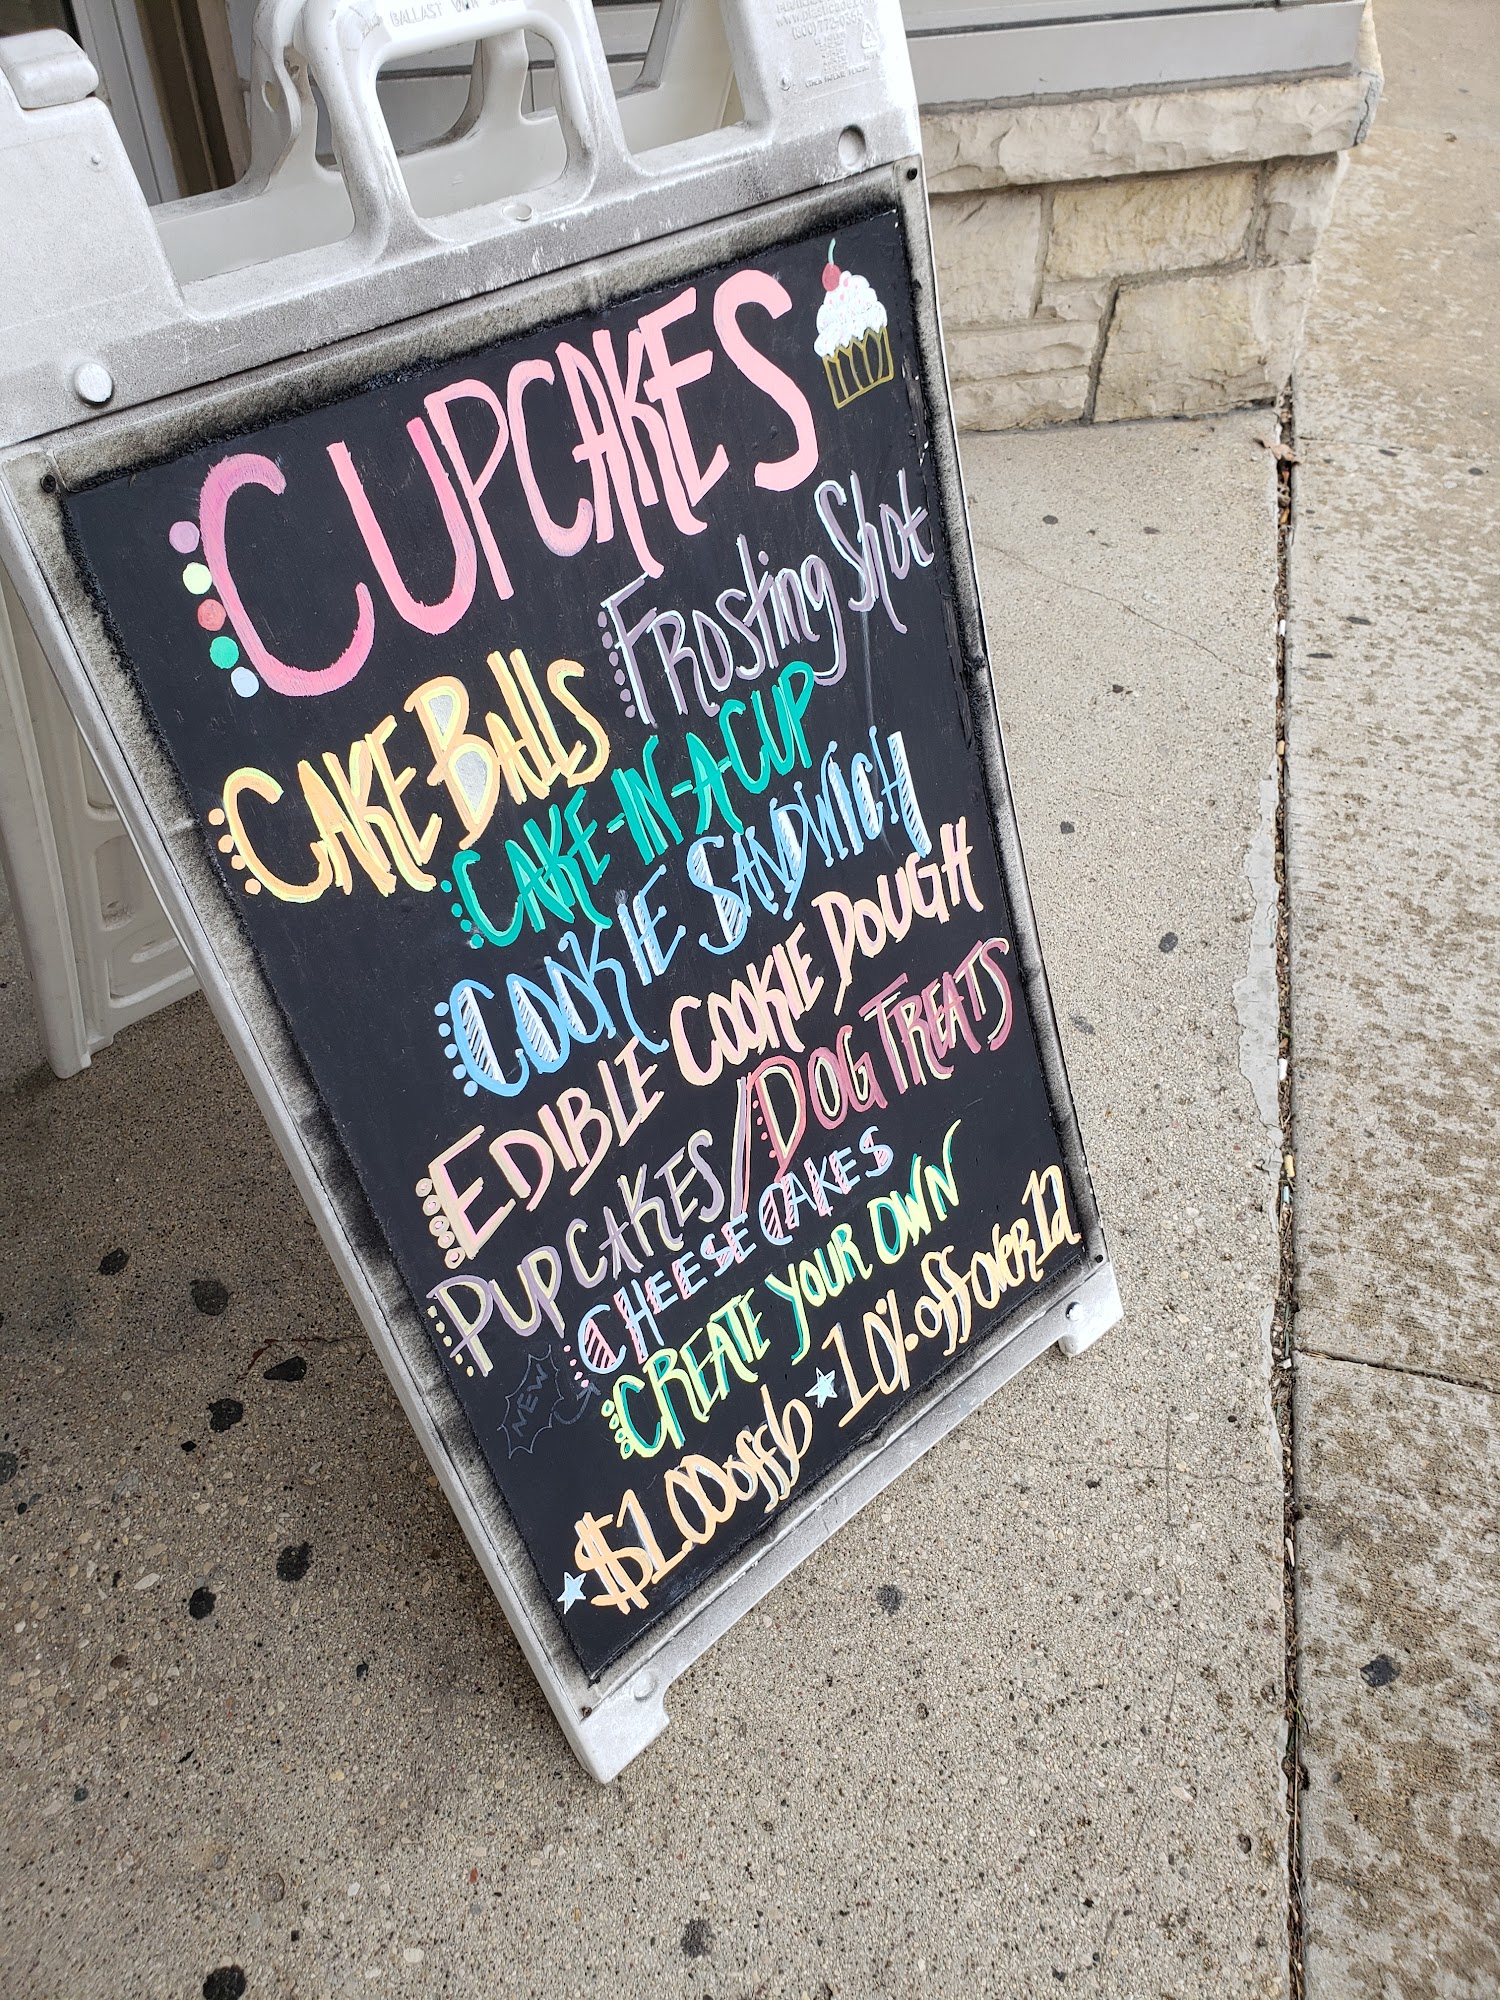 BALLAST
CUPCAKES
Frosting Shot
CAKE BAllS
CAKE-IN-A-CUP
COOKIE SANDWICH
EDIBLE COOKIE DOUGH
PUPCAKES/DOG TREATS
CHEESECAKES
NEW
CREATE YOUR OWN
$1.00 off 6 10% off over 12